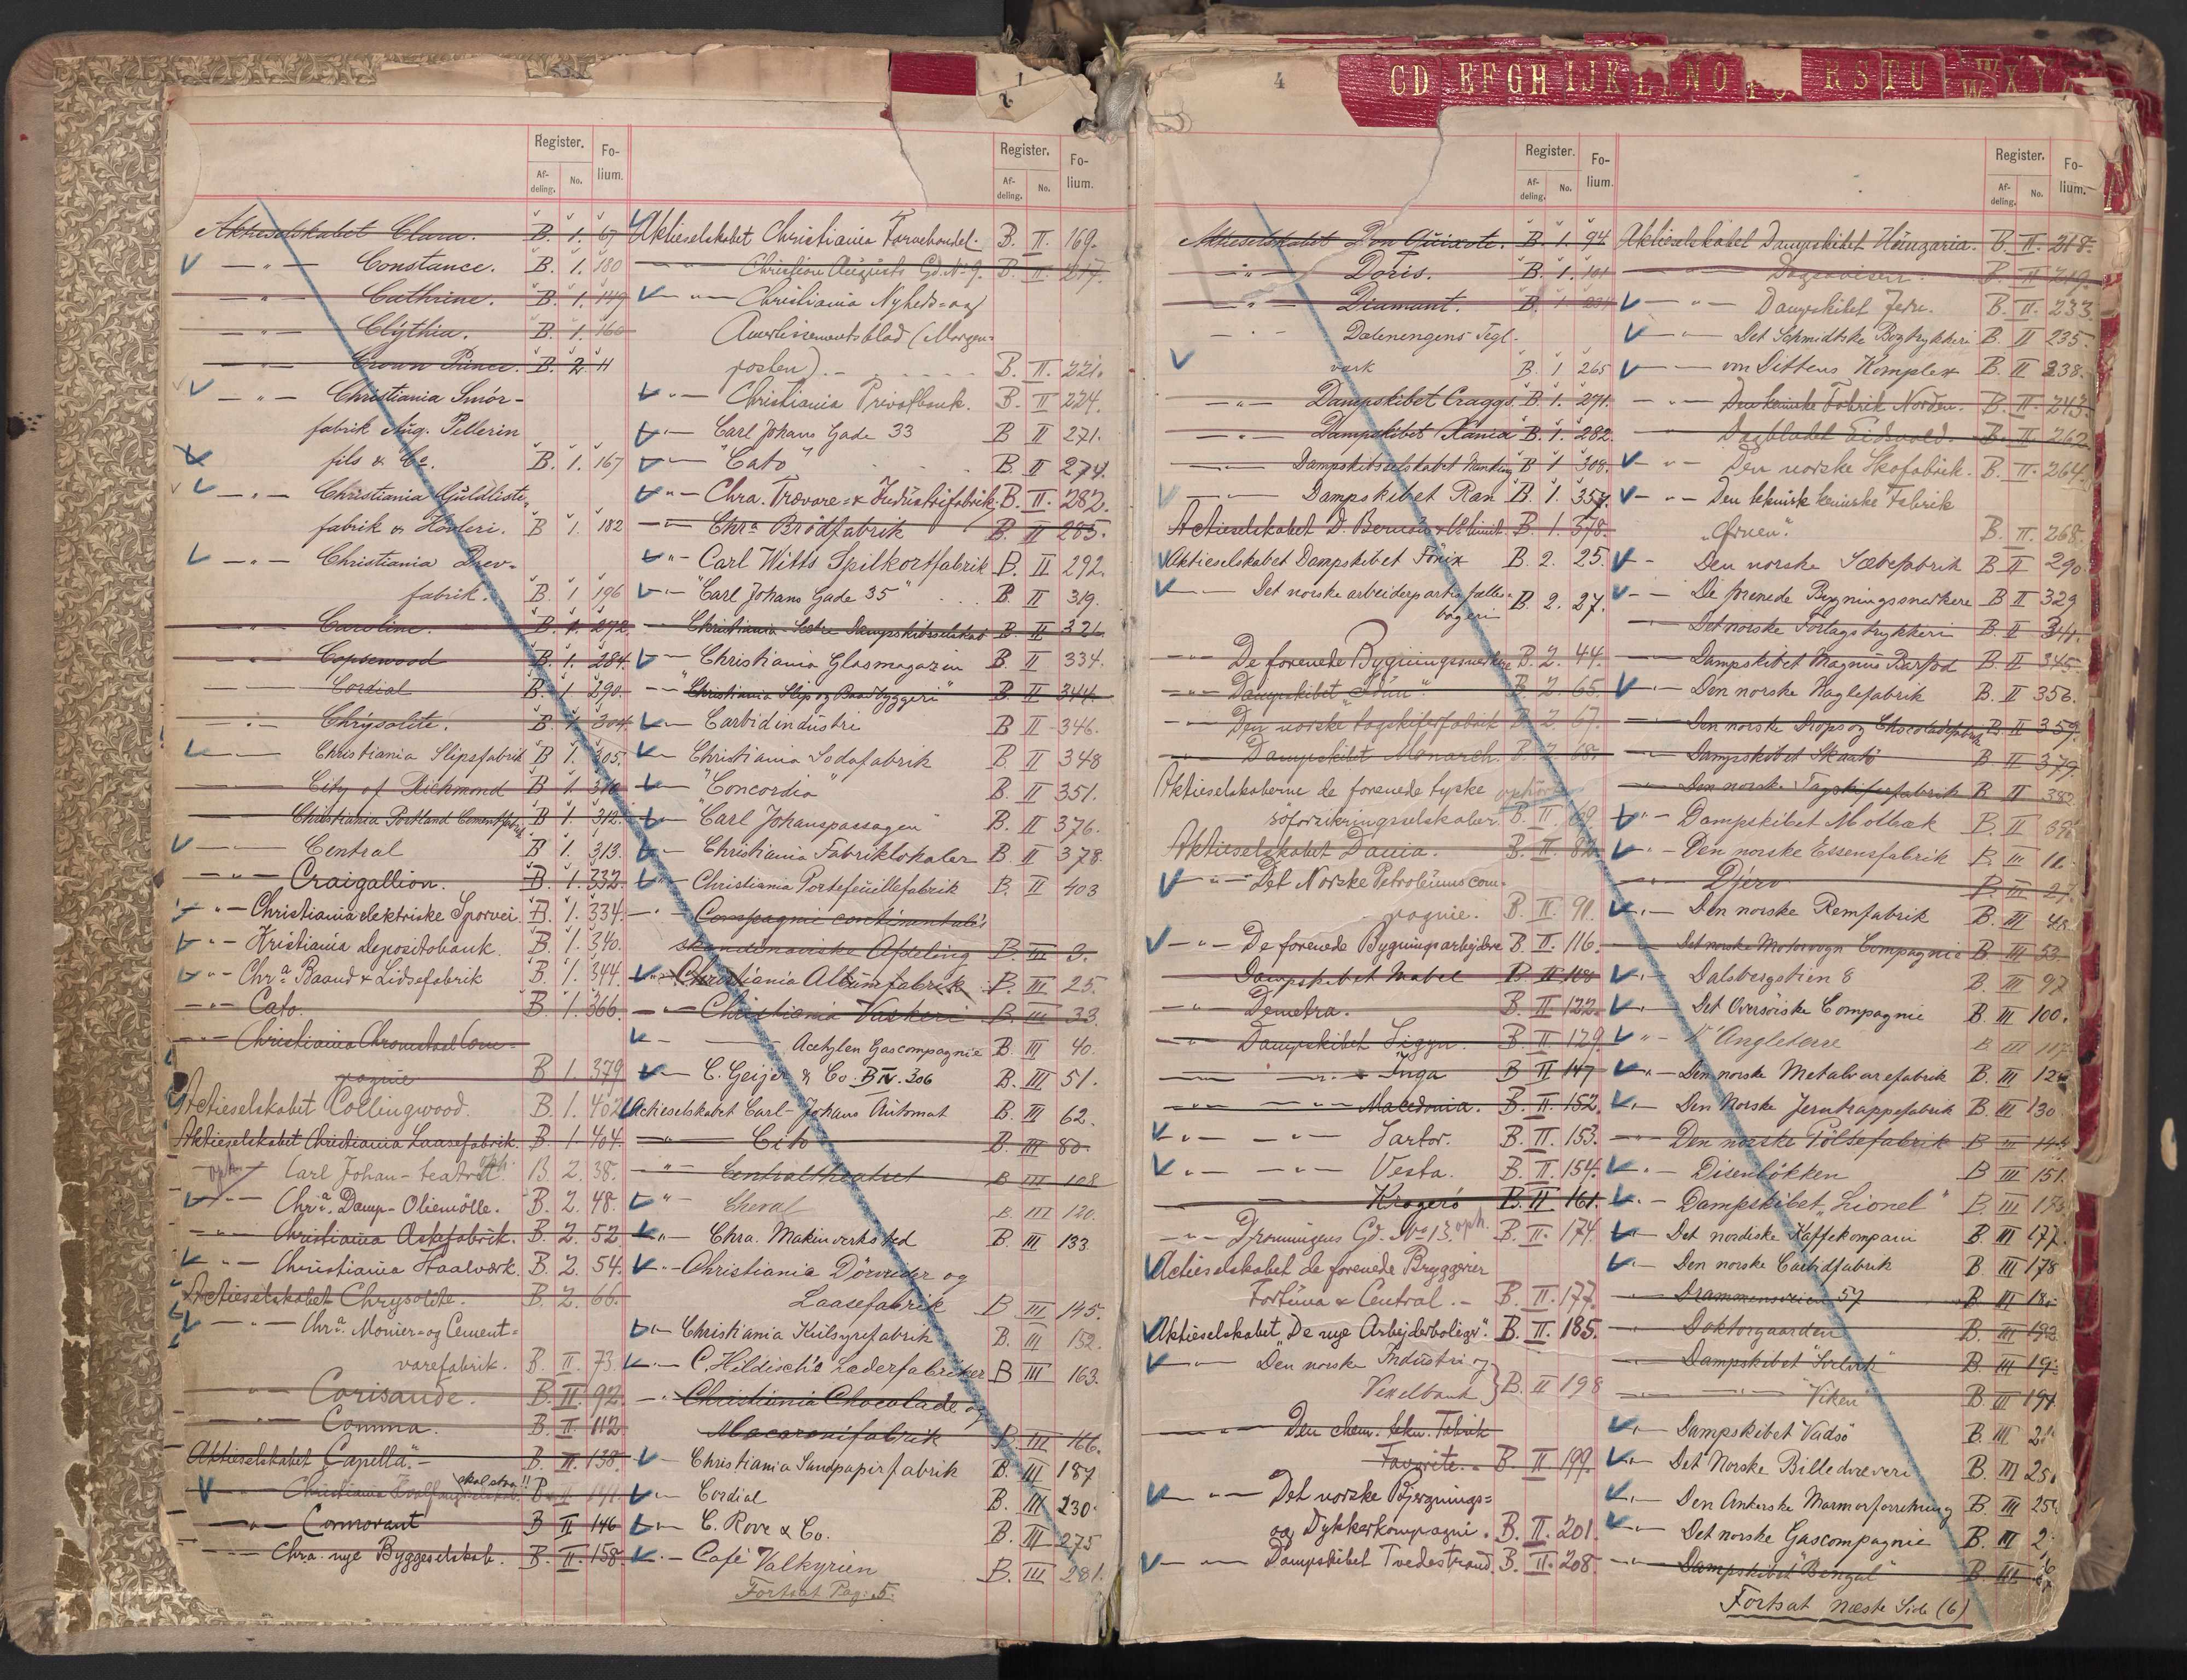 1
4
C D E F G H I J K L N O R S T U W X Y Z
Register.
Fo-
lium.
Af-
deling.
No.
Aktieselskabet Clara. B. 1. 67
— " — Constance. B. 1. 180
— " — Cathrine. B. 1. 149
— " — Clÿthia. B. 1. 160
— " — Crown Prince. B. 2 11
— " — Christiania Smör-
fabrik Aug. Pellerin
fils & Co. B. 1. 167
— " — Christiania Guldliste-
fabrik & Hövleri. B 1. 182
— " — Christiania Drev-
fabrik. B. 1 196
— " — Caroline. B. 1. 272
— " — Copsewood B. 1. 284.
— " — Cordial B. 1 290.
— " — Chrysolite. B. 1. 304
— " — Christiania Slipsfabrik B 1. 305.
— " — City of Richmond B 1. 310
— " — Christiania Portland Cementfabrik B 1. 312.
— " — Central B 1. 313.
— " — Craigallion. B. 1. 332.
— " — Christiania elektriske Sporvei. B. 1. 334.
— " — Kristiania depositobank. B. 1. 340.
— " — Chra. Baand & Lidsefabrik B. 1. 344.
— " — Cato. B. 1. 366.
— " — Christiania Chromotrel Com-
pagnie B 1. 379
Actieselskabet Collingwood. B. 1. 402
Aktieselskabet Christiania Laasefabrik. B. 1. 404.
oph. Carl Johan-teatret. oph. B. 2. 38.
— " — Chra. Damp-Oliemölle. B. 2. 48.
— " — Christiania Askefabrik. B. 2. 52
— " — Christiania Staalværk. B. 2. 54.
Actieselskabet Chrysolite. B. 2. 66.
— " — Chra. Monier- og Cement-
varefabrik. B. II. 73.
— " — Corisande. B. II. 92.
— " — Comma. B. II. 112
Aktieselskabet "Capella". B. II. 138.
— " — Christiania Hvalfangerselskab. skal staa!! B. II 141.
— " — Cormorant B II 146
— " — Chra. nye Byggeselskab. B. II. 158
Register.
Fo-
lium.
Af-
deling.
No.
Aktieselskabet Christiania Farvehandel. B. II. 169.
— " — Christian Augusts Gd. No 9. B. II. 217.
— " — Christiania Nyheds- og
Avertissementsblad (Morgen-
posten). B. II. 221.
— " — Christiania Privatbank. B. II 224.
— " — Carl Johans Gade 33 B II 271.
— " — "Cato" B. II 274.
— " — Chra. Trævare- & Industrifabrik. B. II. 282.
— " — Chra Brödfabrik B. II 285.
— " — Carl Witts Spilkortfabrik B. II 292.
— " — "Carl Johans Gade 35" B. II 319.
— " — Christiania Søetre Dampskibsselskab B. II 321
— " — Christiania Glasmagazin B. II 334.
— " — "Christiania Slip og Baadbyggeri" B. II 344.
— " — Carbidindustri B II 346.
— " — Christiania Sodafabrik B. II 348
— " — "Concordia" B. II 351.
— " — "Carl Johanspassagen" B. II 376.
— " — Christiania Fabriklokaler B. II 378.
— " — Christiania Portefeuillefabrik B. II 403
— " — Compagnie continentale's
skandinaviske Afdeling B. III 3.
— " — Christiania Albumfabrik B. III 25.
— " — Christiania Vaskeri B. III 33.
— " — Acetylen Gascompagnie B. III 40.
— " — C. Geijer & Co. B IV. 306 B. III 51.
Actieselskabet Carl-Johans Automat B. III 62.
— " — Cito B. III 80.
— " — Centraltheatret B III 108
— " — Cheval B. III 120.
— " — Chra. Makinverksted B. III 133.
— " — Christiania Dörvrider og
Laasefabrik B III 145.
— " — Christiania Kulsyrefabrik B. III 152.
— " — C. Hildisch's Læderfabriker B III 163.
— " — Christiania Chocolade og
Macaronifabrik B. III 166.
— " — Christiania Sandpapirfabrik B. III 187
— " — Cordial B. III 230.
— " — C. Rove & Co. B. III 275
— " — Café Valkyrien B. III 281.
Fortsat Pag: 5.
Register.
Fo-
lium.
Af-
deling.
No.
Aktieselskabet Don Quixote. B. 1. 94
— " — Doris. B. 1. 101
— " — Diamant. B. 1 231
— " — Dælenengens Tegl-
værk B. 1 265
— " — Dampskibet Craggs. B. 1. 271.
— " — Dampskibet Xania B. 1. 282.
— " — Dampskibsselskabet Nanking B 1 308.
— " — Dampskibet Ran B. 1. 357.
Actieselskabet D. B. 1. 378.
Aktieselskabet Dampskibet Fönix B. 2. 25.
— " — Det norske arbeiderpartis fælles-
bageri B. 2. 27.
— " — De forenede Bygningssnedkere B. 2. 44.
— " — Dampskibet B. 2. 65.
— " — Den norske tagskiferfabrik B. 2. 67.
— " — Dampskibet Monarch. B. 2. 68.
Aktieselskaberne de forenede tyske ophört
söforsikringsselskaber B. II. 69
Aktieselskabet Dania. B. II. 82
— " — Det Norske Petroleumscom-
pagnie. B. II. 91.
— " — De forenede Bygningsarbejdere B. II. 116.
Dampskibet Mabel B. II 118
— " — Demetra. B. II. 122.
— " — Dampskibet Sigyn. B. II. 129.
— " — — " — Inga B. II 147
— " — — " — Macedonia. B. II. 152.
— " — — " — Sartor. B. II. 153.
— " — — " — Vesta. B. II. 154.
— " — Kragerö B. II 161.
— " — Dronningens Gd. No 13 oph. B. II. 174.
Actieselskabet de forenede Bryggerier
Fortuna & Central. B. II. 177.
Aktieselskabet "De nye Arbejderboliger". B. II. 185.
— " — Den norske Industri og
Vexelbank } B. II 198
— " — Den chem. tekn. Fabrik
Favorite. B. II 199.
— " — Det norske Bjergnings-
og Dykkerkompagni. B. II. 201.
— " — Dampskibet Tvedestrand B. II. 208.
Register.
Fo-
lium.
Af-
deling.
No.
Aktieselskabet Dampskibet Hungaria. B. II. 218.
— " — Dagsavisen. B. II 219.
— " — Dampskibet Jedr. B. II. 233.
— " — Det Schmidtske Bogtrykkeri B. II 235.
— " — von Dittens Komplex B. II 238.
— " — Den kemiske Fabrik Norden. B. II. 243.
— " — Dagbladet Eidsvold. B. II 262.
— " — Den norske Skofabrik. B. II. 264.
— " — Den teknisk kemiske Fabrik
"Ørnen". B. II. 268.
— " — Den norske Sæbefabrik B II 290
— " — De forenede Bygningssnedkere B II 329
— " — Det norske Forlagstrykkeri B. II 341.
— " — Dampskibet Magnus Barfod B. II 345.
— " — Den norske Haglefabrik B. II 356.
— " — Den norske Drops og Chocoladefabrik B. II 359.
— " — Dampskibet Skaatö B. II 379.
— " — Den norske Tagskiferfabrik B II 382.
— " — Dampskibet Molbæk B. II
— " — Den norske Essensfabrik B. III 11.
— " — Djerv B. III 27.
— " — Den norske Remfabrik B. III 48.
— " — Det norske Motorvogn Compagnie B. III 53.
— " — Dalsbergstien 8 B. III 97
— " — Det Oversöiske Compagnie B. III 100.
— " — d'Angleterre B III 117.
— " — Den norske Metalvarefabrik B. III
— " — Den Norske Jerntrappefabrik B. III 130.
— " — Den norske Pölsefabrik B III 144
— " — Disenbökken B III 151.
— " — Dampskibet "Lionel" B. III
— " — Det nordiske Kaffekompani B. III 177.
— " — Den norske Carbidfabrik B III 178
— " — Drammensveien 57 B. III
— " — Doktorgaarden B. III 192
— " — Dampskibet B. III
— " — — " — "Viken" B. III 194.
— " — Dampskibet Vadsö B. III
— " — Det Norske Billedvæveri B. III
— " — Den Ankerske Marmorforretning B. III
— " — Det norske Gascompagnie B. III
— " — Dampskibet "Bengal" B. III
Fortsat næste Side (6)